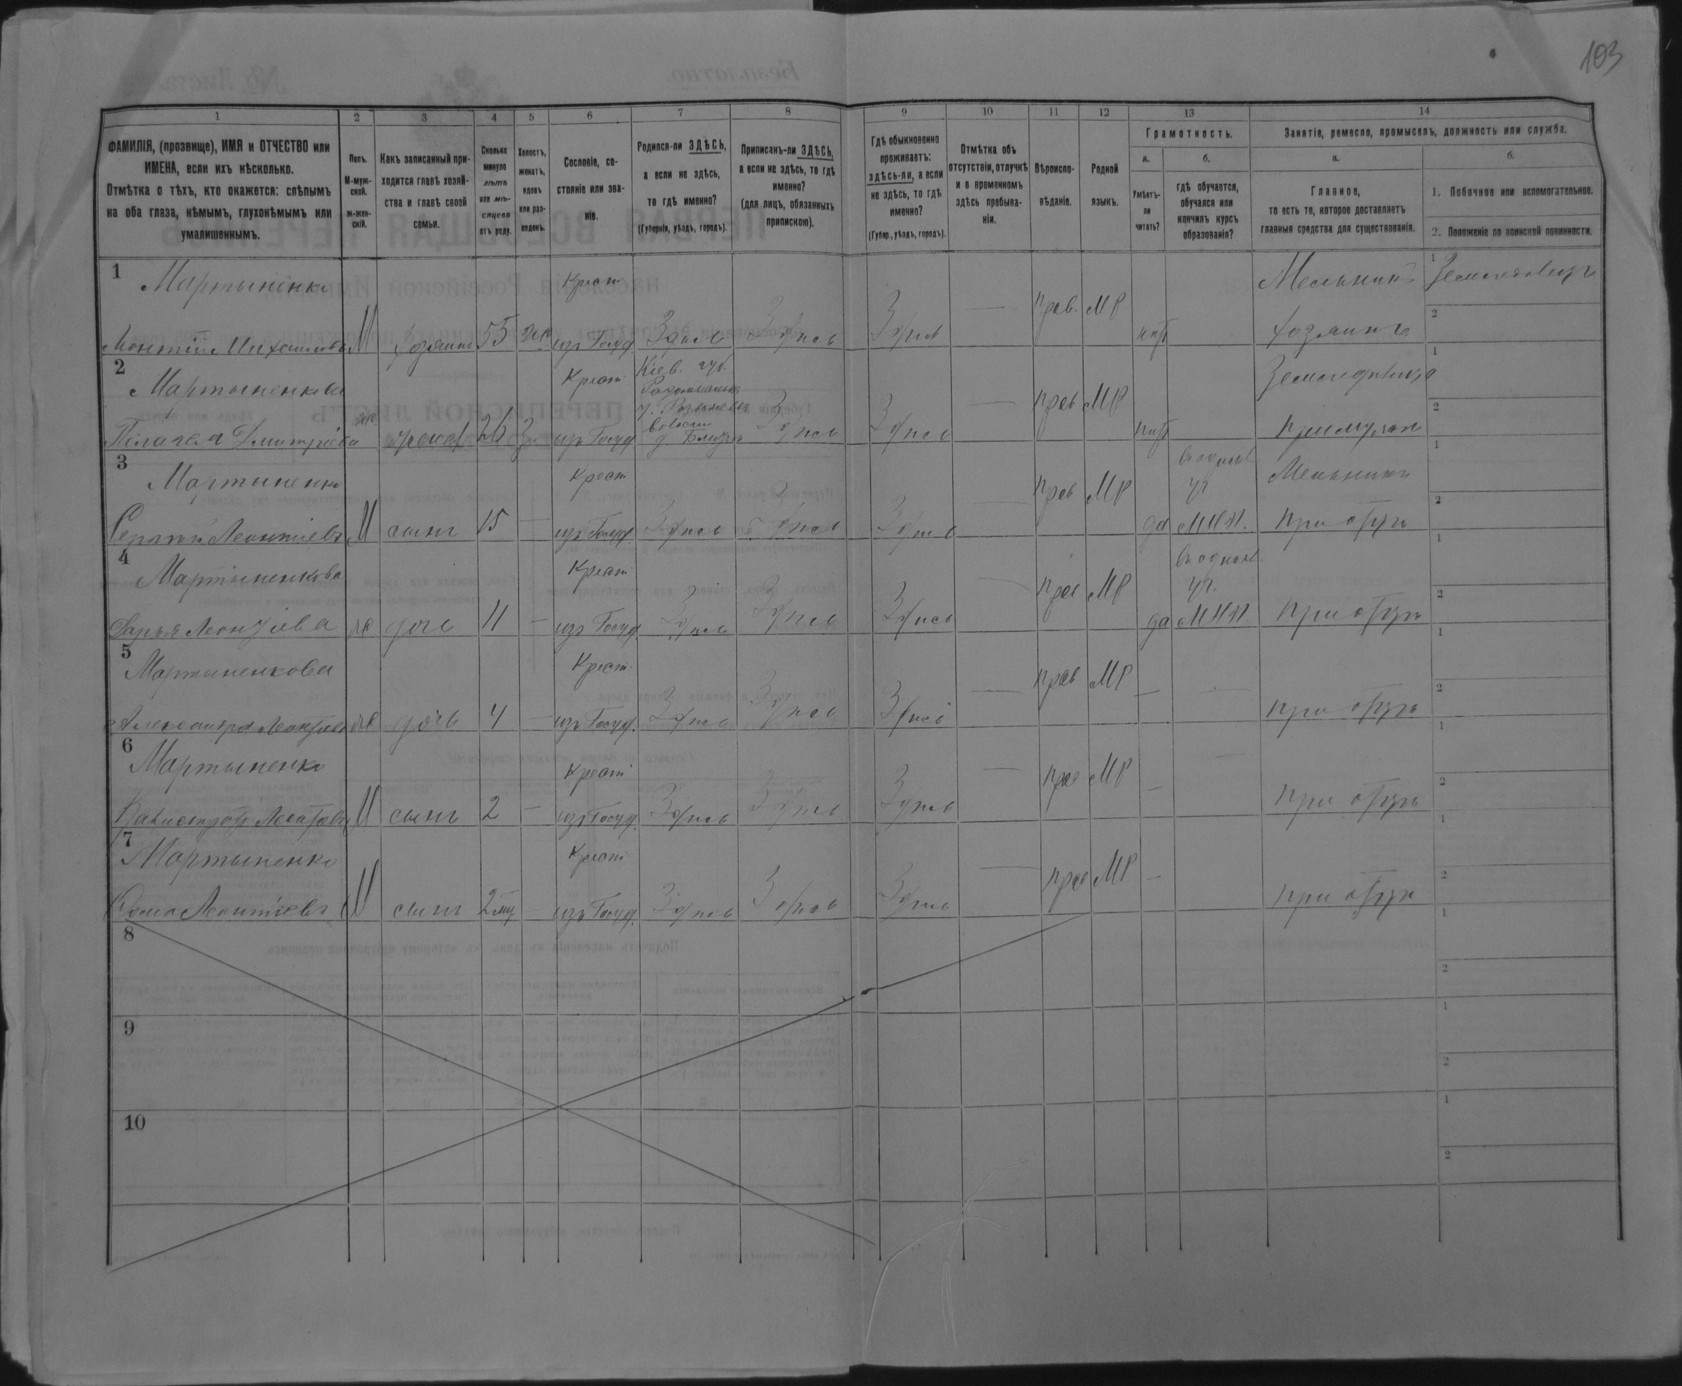 103
1 2 3 4 5 6 7 8 9 10 11 12 13 14
ФАМИЛІЯ, (прозвище), ИМЯ и ОТЧЕСТВО или
ИМЕНА, если ихъ нѣсколько.
Отмѣтка о тѣхъ, кто окажется: слѣпымъ
на оба глаза, нѣмымъ, глухонѣмымъ или
умалишеннымъ.
Полъ.
М-муж-
ской.
ж-жен-
скій.
Какъ записанный при-
ходится главѣ хозяй-
ства и главѣ своей
семьи.
Сколько
минуло
лѣтъ
или мѣ-
сяцевъ
отъ роду.
Холостъ,
женатъ,
вдовъ
или раз-
веденъ.
Сословіе, со-
стояніе или зва-
ніе.
Родился-ли ЗДѢСЬ,
а если не здѣсь,
то гдѣ именно?
(Губернія, уѣздъ, городъ).
Приписанъ-ли ЗДѢСЬ,
а если не здѣсь, то гдѣ
именно?
(для лицъ, обязанныхъ
припискою).
Гдѣ обыкновенно
проживаетъ:
здѣсь-ли, а если
не здѣсь, то гдѣ
именно?
(Губер., уѣздъ, городъ).
Отмѣтка объ
отсутствіи, отлучкѣ
и о временномъ
здѣсь пребыва-
ніи.
Вѣроиспо-
вѣданіе.
Родной
языкъ.
Грамотность.
а.
Умѣетъ-
ли
читать?
б.
гдѣ обучается,
обучался или
кончилъ курсъ
образованія?
Занятіе, ремесло, промыселъ, должность или служба.
а.
Главное,
то есть то, которое доставляетъ
главныя средства для существованія.
б.
1. Побочное или вспомогательное.
2. Положеніе по воинской повинности.
1 Мартыненко Крест Мельникъ 1
Прав. МР
М хозяинъ 55 изъ Госуд Здѣсь Здѣсь Здѣсь нѣтъ хозяинъ 2
2 Мартыненкова Крест Кіев. губ. 1
Прав МР
Пелагея Дмитріева жена 26 изъ Госуд Здѣсь Здѣсь нѣтъ при мужѣ 2
3 Мартыненко Крест Прав МР Мельникъ 1
Сергѣй Леонтіевъ М сынъ 15 — изъ Госуд Здѣсь Здѣсь Здѣсь да МНП. при отцѣ 2
4 Мартыненкова Крест Прав МР 1
Дарья Леонтіева ж дочь 11 — изъ Госуд. Здѣсь Здѣсь Здѣсь да МНП. при отцѣ 2
5 Мартыненкова Крест Прав МР 1
Александра ж дочь 4 — изъ Госуд. Здѣсь Здѣсь Здѣсь при отцѣ 2
6 Мартыненко Крест Прав МР 1
М сынъ 2 — изъ Госуд. Здѣсь Здѣсь Здѣсь при отцѣ 2
7 Мартыненко Крест Прав МР 1
Леонтіевъ М сынъ изъ Госуд. Здѣсь Здѣсь Здѣсь при отцѣ 2
8 1
2
9 1
2
10 1
2